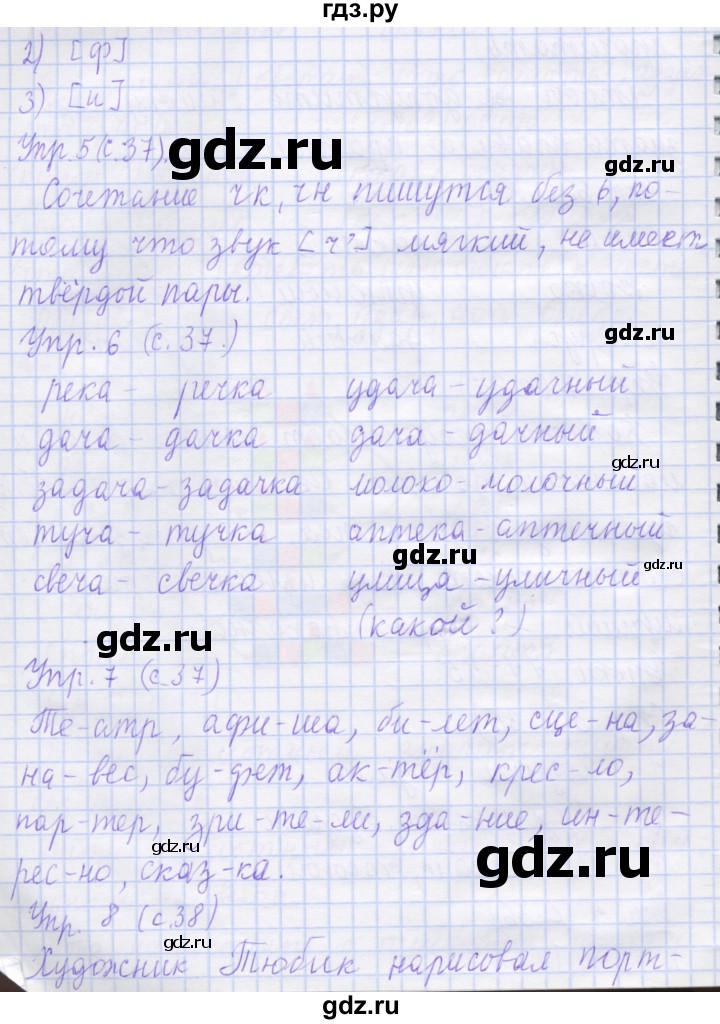 гдз.ру
2) [ф]
3) [и]
Упр. 5 (с. 37).
gdz.ru
gdz.ru
Сочетание чк, чн пишутся без ь, по-
тому что звук [ч'] мягкий, не имеет
твёрдой пары.
Упр. 6 (с. 37.)
gdz.ru
река - речка удача - удачный
дача - дачка дача - дачный
gdz.ru
задача - задачка молоко - молочный
туча - тучка аптека - аптечный
gdz.ru
gdz.ru
свеча - свечка улица - уличный
(какой?)
gdz.ru
Упр. 7 (с. 37)
gdz.ru
Те-атр, афи-ша, би-лет, сце-на, за-
на-вес, бу-фет, ак-тёр, крес-ло,
пар-тер, зри-те-ли, зда-ние, ин-те-
gdz.ru
gdz.ru
рес-но, сказ-ка.
Упр. 8 (с. 38)
gdz.ru
gdz.ru
Художник Тюбик нарисовал порт-
gdz.ru